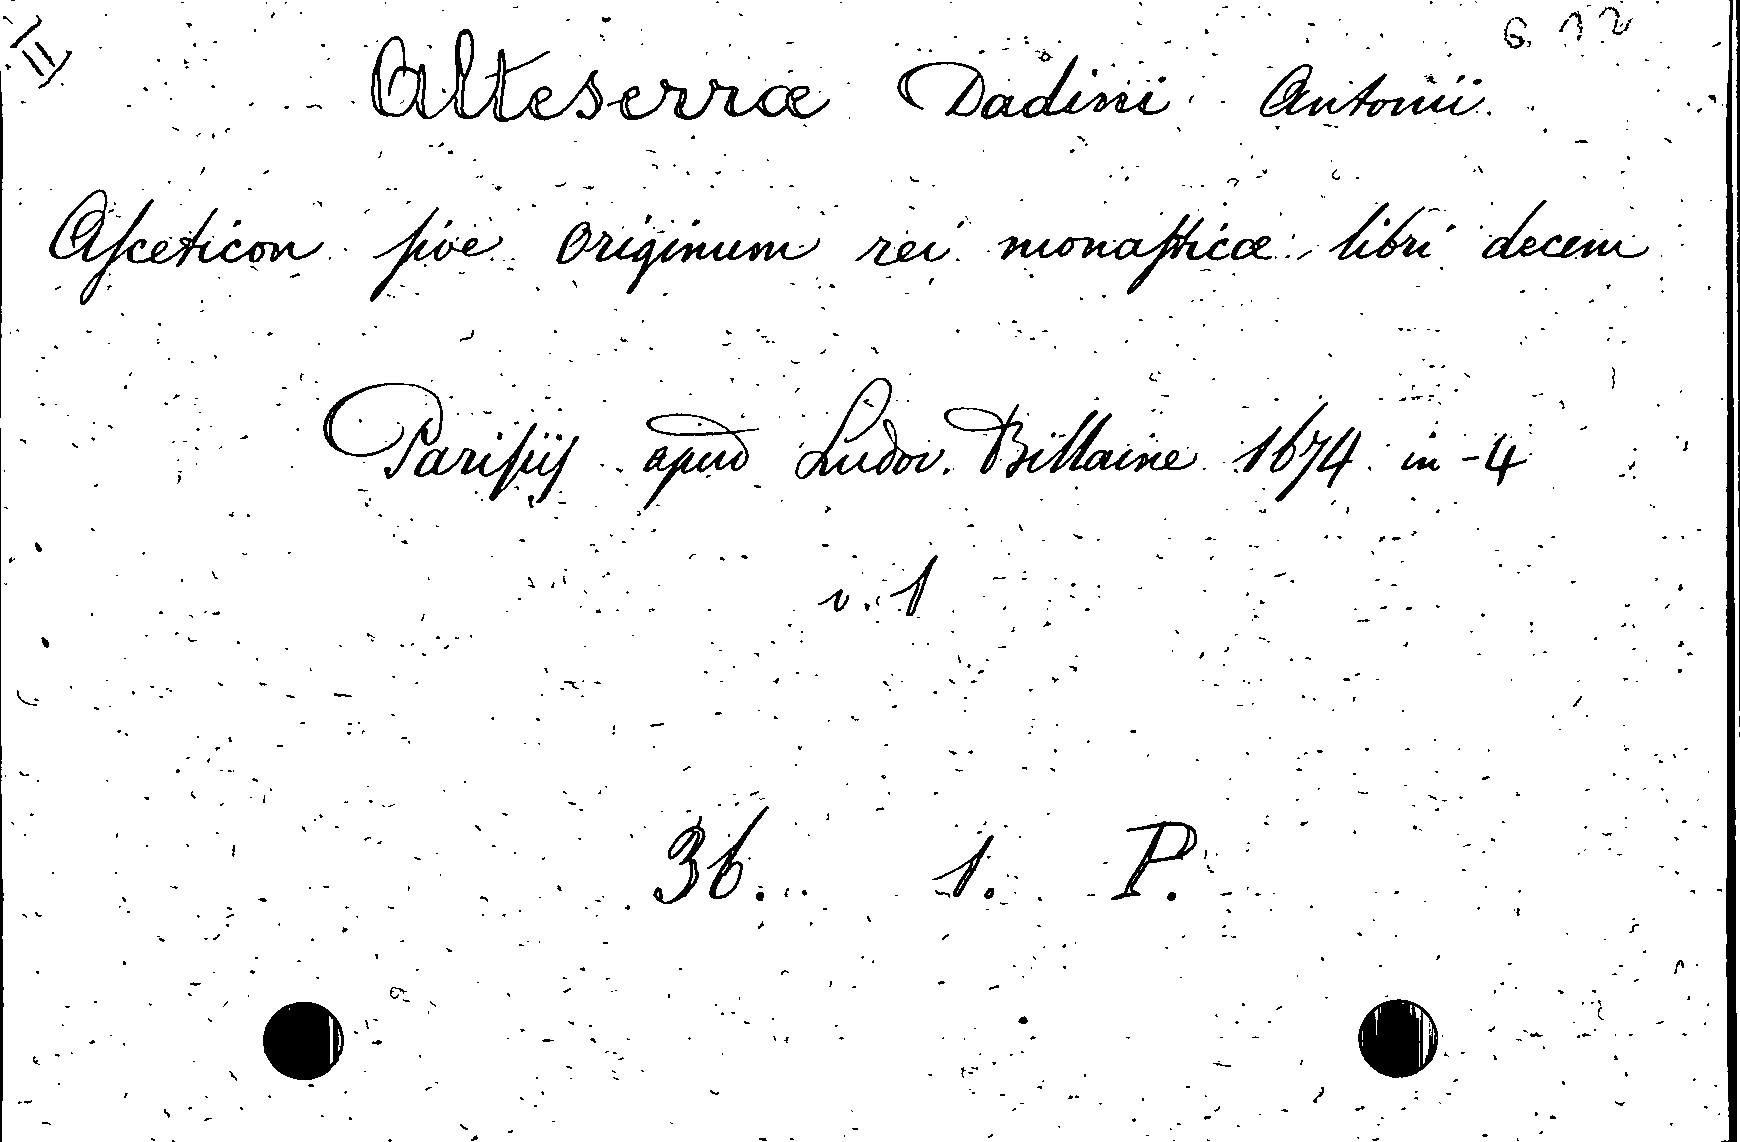 II
G. 12
Alteserræ Dadini Antonii
Aſceticon ſive Originum rei monaſticæ libri decem
Pariſiiſ apud Ludov. Billaine 1674 in-4
v. 1
36. 1. P.